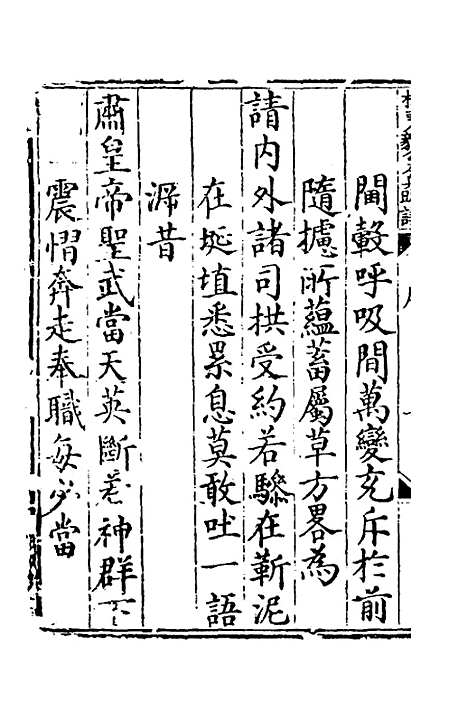 闔轂呼吸間萬變充斥於前
隨攄所蘊蓄屬草方畧為
請內外諸司拱受約若驂在靳泥
在埏埴悉累息莫敢吐一語
溯昔
肅皇帝聖武當天英斷若神群下
震慴奔走奉職每必當